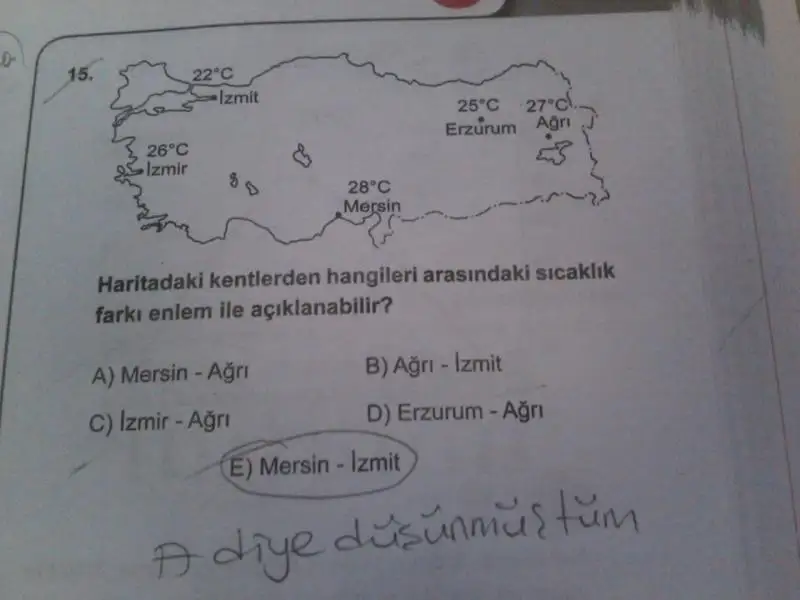 15.
22°C
İzmit
25°C 27°C
Erzurum Ağrı
26°C
İzmir
28°C
Mersin
Haritadaki kentlerden hangileri arasındaki sıcaklık
farkı enlem ile açıklanabilir?
A) Mersin - Ağrı B) Ağrı - İzmit
C) İzmir - Ağrı D) Erzurum - Ağrı
E) Mersin - İzmit
A diye düşünmüştüm